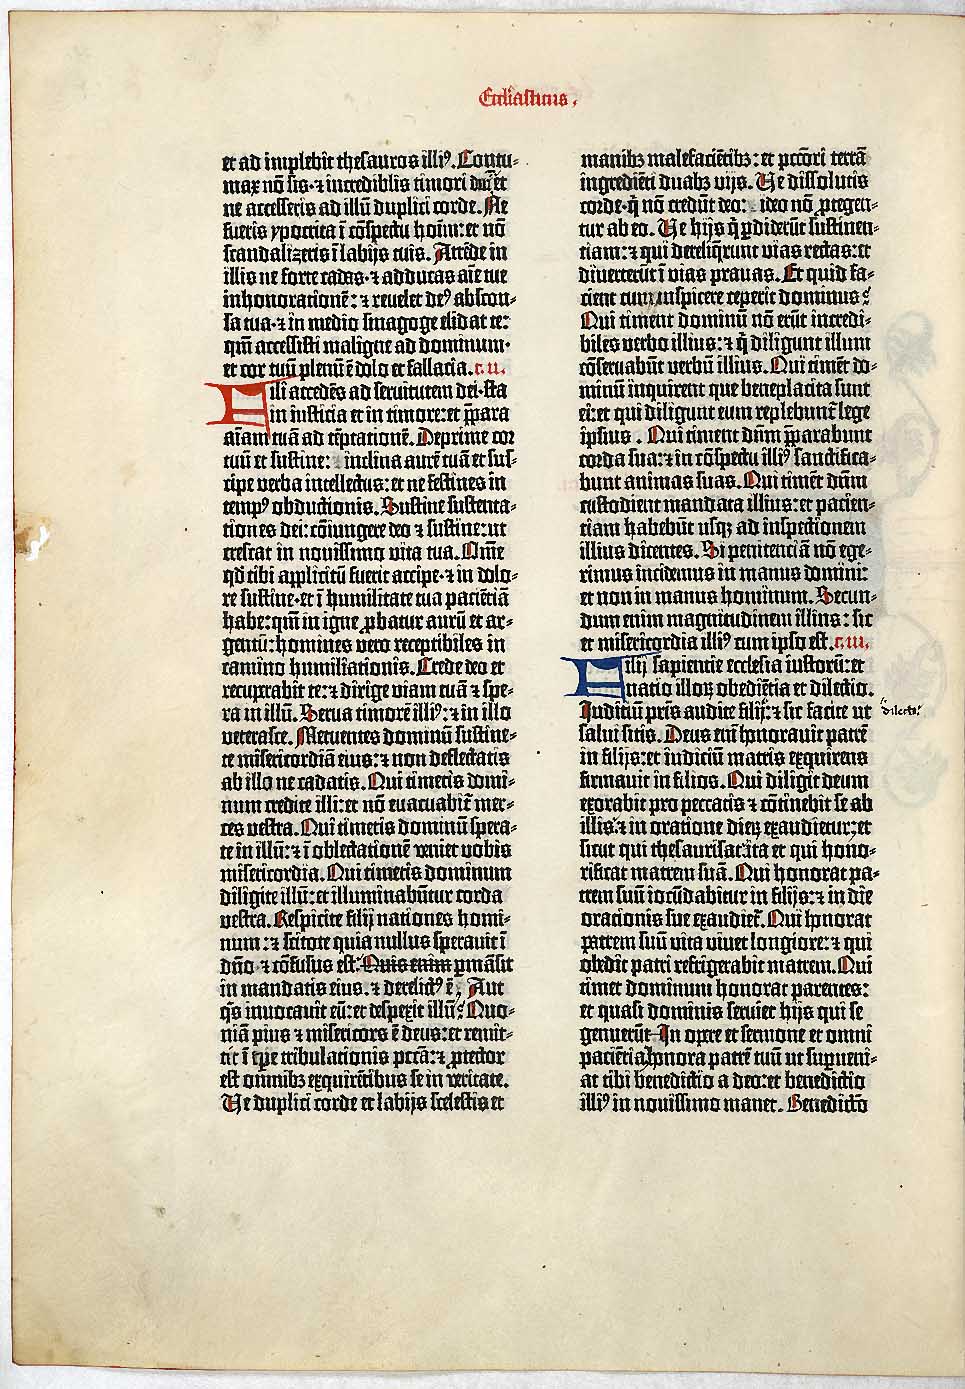 Eccl'iasticus.
et ad implebit thesauros illi⁹. Contu-
max nō sis· ⁊ incredibilis timori dn̄i: et
ne accesseris ad illū duplici corde. Ne
fueris ypocrita ī cōspectu hoīm: et nō
scandalizeris ī labijs tuis. Attēde in
illis ne forte cadas· ⁊ adducas aīe tue
inhonorationē: ⁊ reuelet de⁹ abscon-
sa tua· ⁊ in medio sinagoge elidat te:
qm̄ accessisti maligne ad dominum·
et cor tuū plenū ē dolo et fallacia. c. ii.
Fili accedēs ad seruitutem dei· sta
in iusticia et in timore: et p̄para
aīam tuā ad tēptationē. Deprime cor
tuū et sustine: ⁊ inclina aurē tuā et sus-
cipe verba intellectus: et ne festines in
temp⁹ obductionis. Sustine sustenta-
tiones dei: cōiungere deo ⁊ sustine: ut
crescat in nouissimo vita tua. Om̄e
qd̄ tibi applicitū fuerit accipe· ⁊ in dolo-
re sustine· et ī humilitate tua paciētiā
habe: qm̄ in igne ꝓbatur aurū et ar-
gentū: homines vero receptibiles in
camino humiliationis. Crede deo et
recuperabit te: ⁊ dirige viam tuā ⁊ spe-
ra in illū. Serua timorē illi⁹: ⁊ in illo
veterasce. Metuentes dominū sustine-
te misericordiā eius: ⁊ non deflectatis
ab illo ne cadatis. Qui timetis domi-
num credite illi: et nō euacuabit̄ mer-
ces vestra. Qui timetis dominū spera-
te in illū: ⁊ ī oblectationē veniet vobis
misericordia. Qui timetis dominum
diligite illū: et illuminabūtur corda
vestra. Respicite filij nationes homi-
num: ⁊ scitote quia nullus sperauit ī
dn̄o ⁊ cōfusus est. Quis enim ꝑmāsit
in mandatis eius. ⁊ derelict⁹ ē; Aut
q̄s inuocauit eū: et despexit illū; Quo-
niā pius ⁊ misericors ē deus: et remit-
tit ī tꝑe tribulationis pccā: ⁊ ꝓtector
est omnibꝫ exquirētibus se in veritate.
Ve duplici corde et labijs scelestis et
manibꝫ malefaciētibꝫ: et pccōri terrā
ingrediēti duabꝫ vijs. Ve dissolutis
corde· q̄ nō credūt deo: ideo nō ꝓtegen-
tur ab eo. Ve hijs q̄ ꝑdiderūt sustinen-
tiam: ⁊ qui dereliq̄runt vias rectas: et
diuerterūt ī vias prauas. Et quid fa-
cient cum inspicere ceperit dominus;
Qui timent dominū nō erūt incredi-
biles verbo illius: ⁊ q̄ diligunt illum
cōseruabūt verbū illius. Qui timēt do-
minū inquirent que beneplacita sunt
ei: et qui diligunt eum replebunt̄ lege
ipsius. Qui timent dn̄m p̄parabunt
corda sua: ⁊ in cōspectu illi⁹ sanctifica-
bunt animas suas. Qui timēt dn̄m
custodient mandata illius: et pacien-
tiam habebūt usqꝫ ad inspectionem
illius dicentes. Si penitenciā nō ege-
rimus incidemus in manus domini:
et non in manus hominum. Secun-
dum enim magnitudinem illius: sic
et misericordia illi⁹ cum ipso est. c. iii.
Filij sapientie ecclesia iustorū: et
natio illoꝝ obediētia et dilectio.
Iudiciū pris audite filij: ⁊ sic facite ut
salui sitis. Deus em̄ honorauit patrē
in filijs: et iudiciū matris exquirens
firmauit in filios. Qui diligit deum
exorabit pro peccatis ⁊ cōtinebit se ab
illis· ⁊ in oratione dieꝝ exaudietur: et
sicut qui thesaurisat· ita et qui hono-
rificat matrem suā. Qui honorat pa-
trem suū iocūdabitur in filijs: ⁊ in die
orationis sue exaudiet̄. Qui honorat
patrem suū vita viuet longiore: ⁊ qui
obedit patri refrigerabit matrem. Qui
timet dominum honorat parentes:
et quasi dominis seruiet hijs qui se
genuerūt. In oꝑe et sermone et omni
paciētia honora patrē tuū ut suꝑueni-
at tibi benedictio a deo: et benedictio
illi⁹ in nouissimo manet. Benedictō